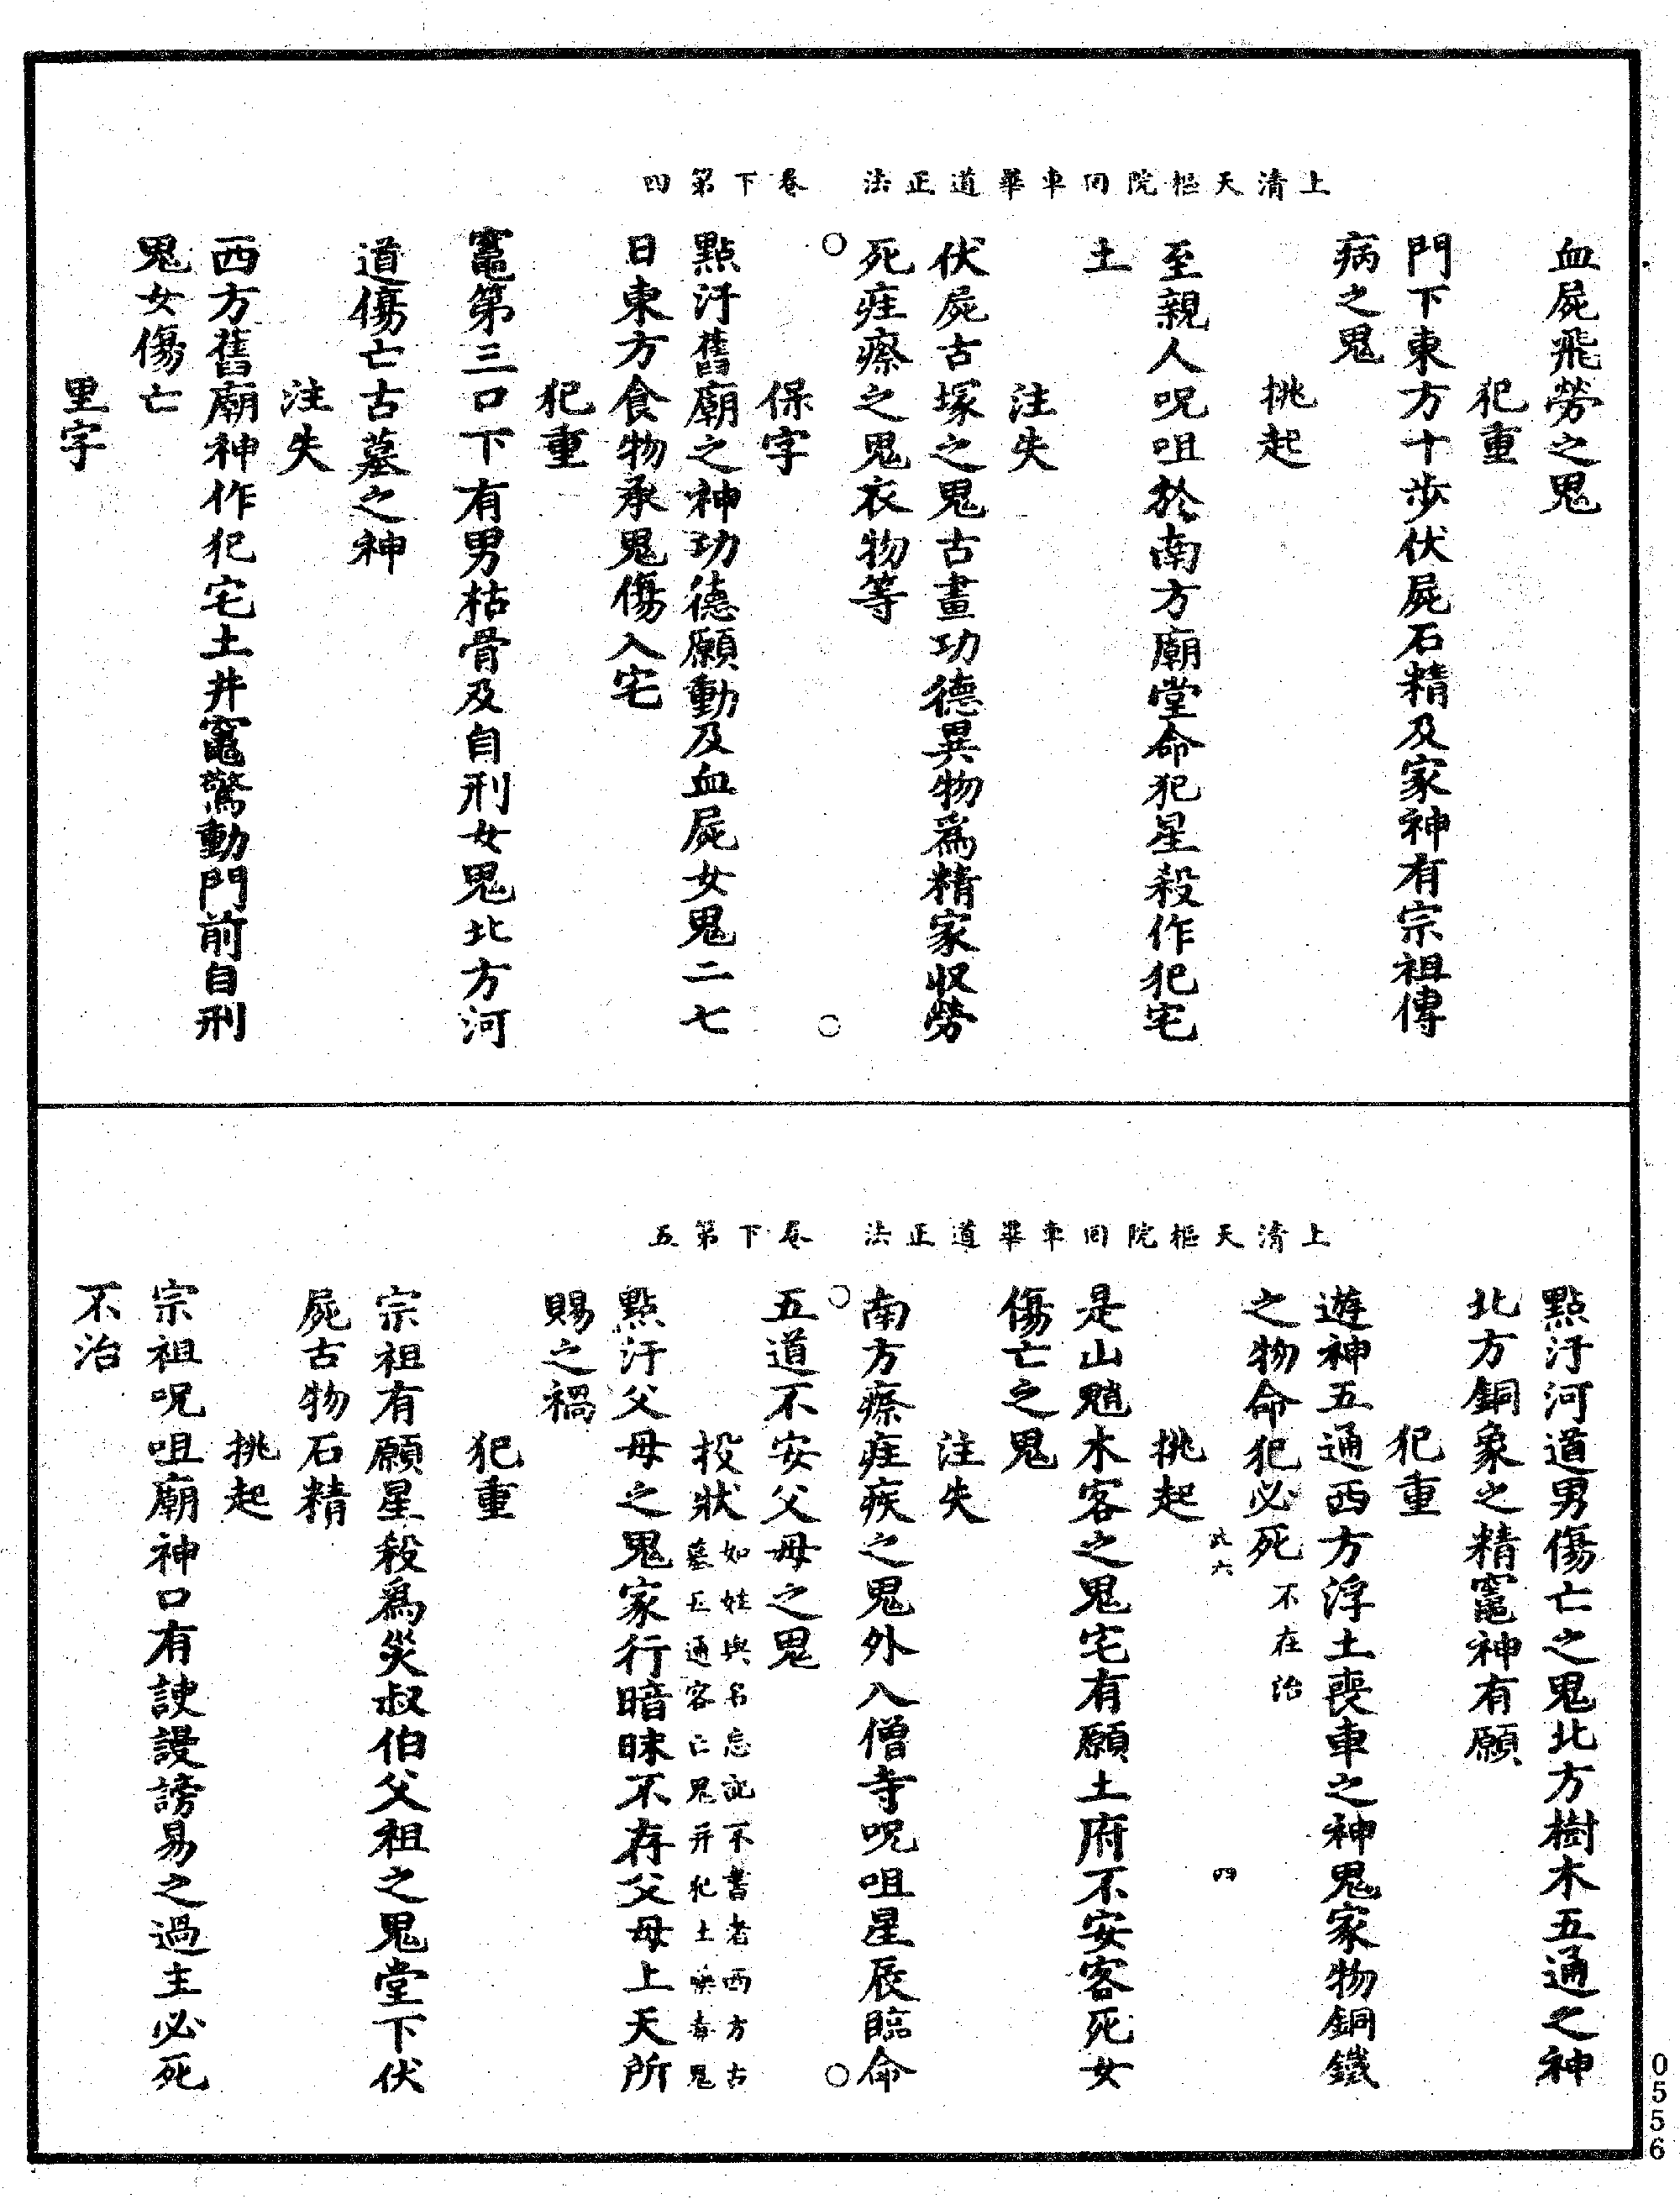 上清天樞院回車畢道正法　卷下第四
血屍飛勞之鬼
犯重
門下東方十步伏屍石精及家神有宗祖傳
病之鬼
挑起
至親人呪咀於南方廟堂命犯星殺作犯宅
土
注失
伏屍古塚之鬼古畫功德異物爲精家收勞
死疰瘵之鬼衣物等
保字
點汙舊廟之神功德願動及血屍女鬼二七
日東方食物承鬼傷入宅
犯重
竈第三口下有男枯骨及自刑女鬼北方河
道傷亡古墓之神
注失
西方舊廟神作犯宅土井竈驚動門前自刑
鬼女傷亡
里字
上清天樞院回車畢道正法　卷下第五
點汙河道男傷亡之鬼北方樹木五通之神
北方銅象之精竈神有願
犯重
遊神五通西方浮土喪車之神鬼家物銅鐵
之物命犯必死不在治
挑起
是山魈木客之鬼宅有願土府不安客死女
傷亡之鬼
注失
南方瘵疰疾之鬼外入僧寺呪咀星辰臨命
五道不安父母之鬼
投狀如姓與名忘記不書者西方古
墓五通客亡鬼并犯土喚毒鬼
點汙父母之鬼家行暗昧不存父母上天所
賜之禍
犯重
宗祖有願星殺爲災叔伯父祖之鬼堂下伏
屍古物石精
挑起
宗祖呪咀廟神口有諛謾謗易之過主必死
不治
0556